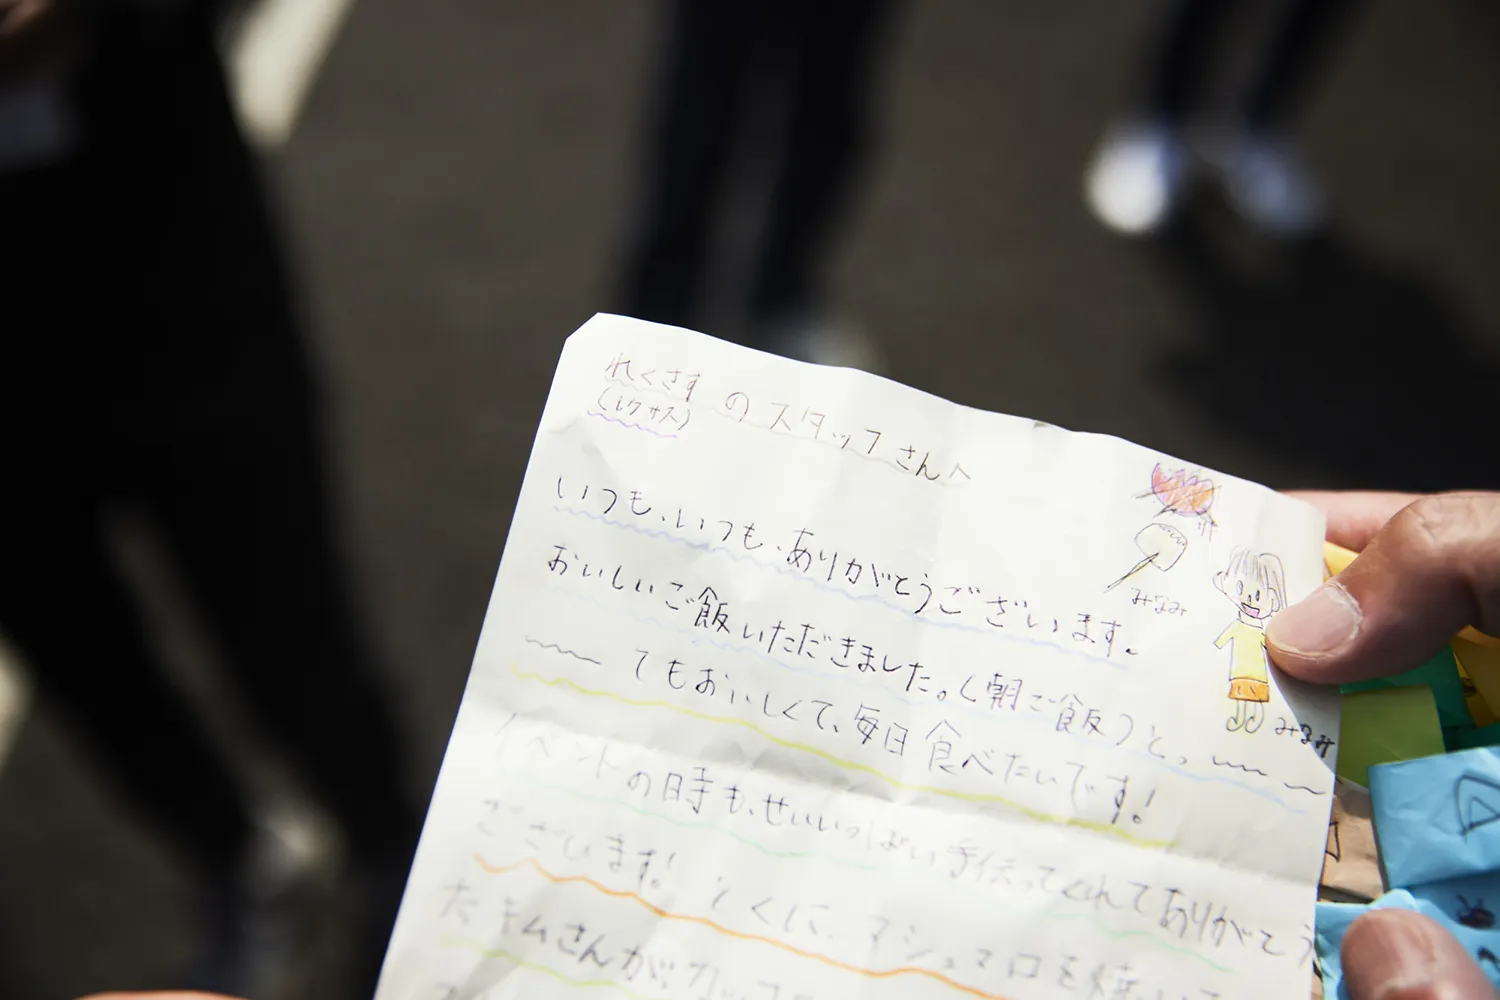 れくさす のスタッフさんへ
(レクサス)
いつも、いつも、ありがとうございます。
おいしいご飯いただきました。(朝ご飯)と、
てもおいしくて、毎日食べたいです!
イベントの日時も、せいいっぱい手伝ってくれてありがとう
ございます! とくに、マシュマロを焼いて
たキムさんが
みなみ
みなみ